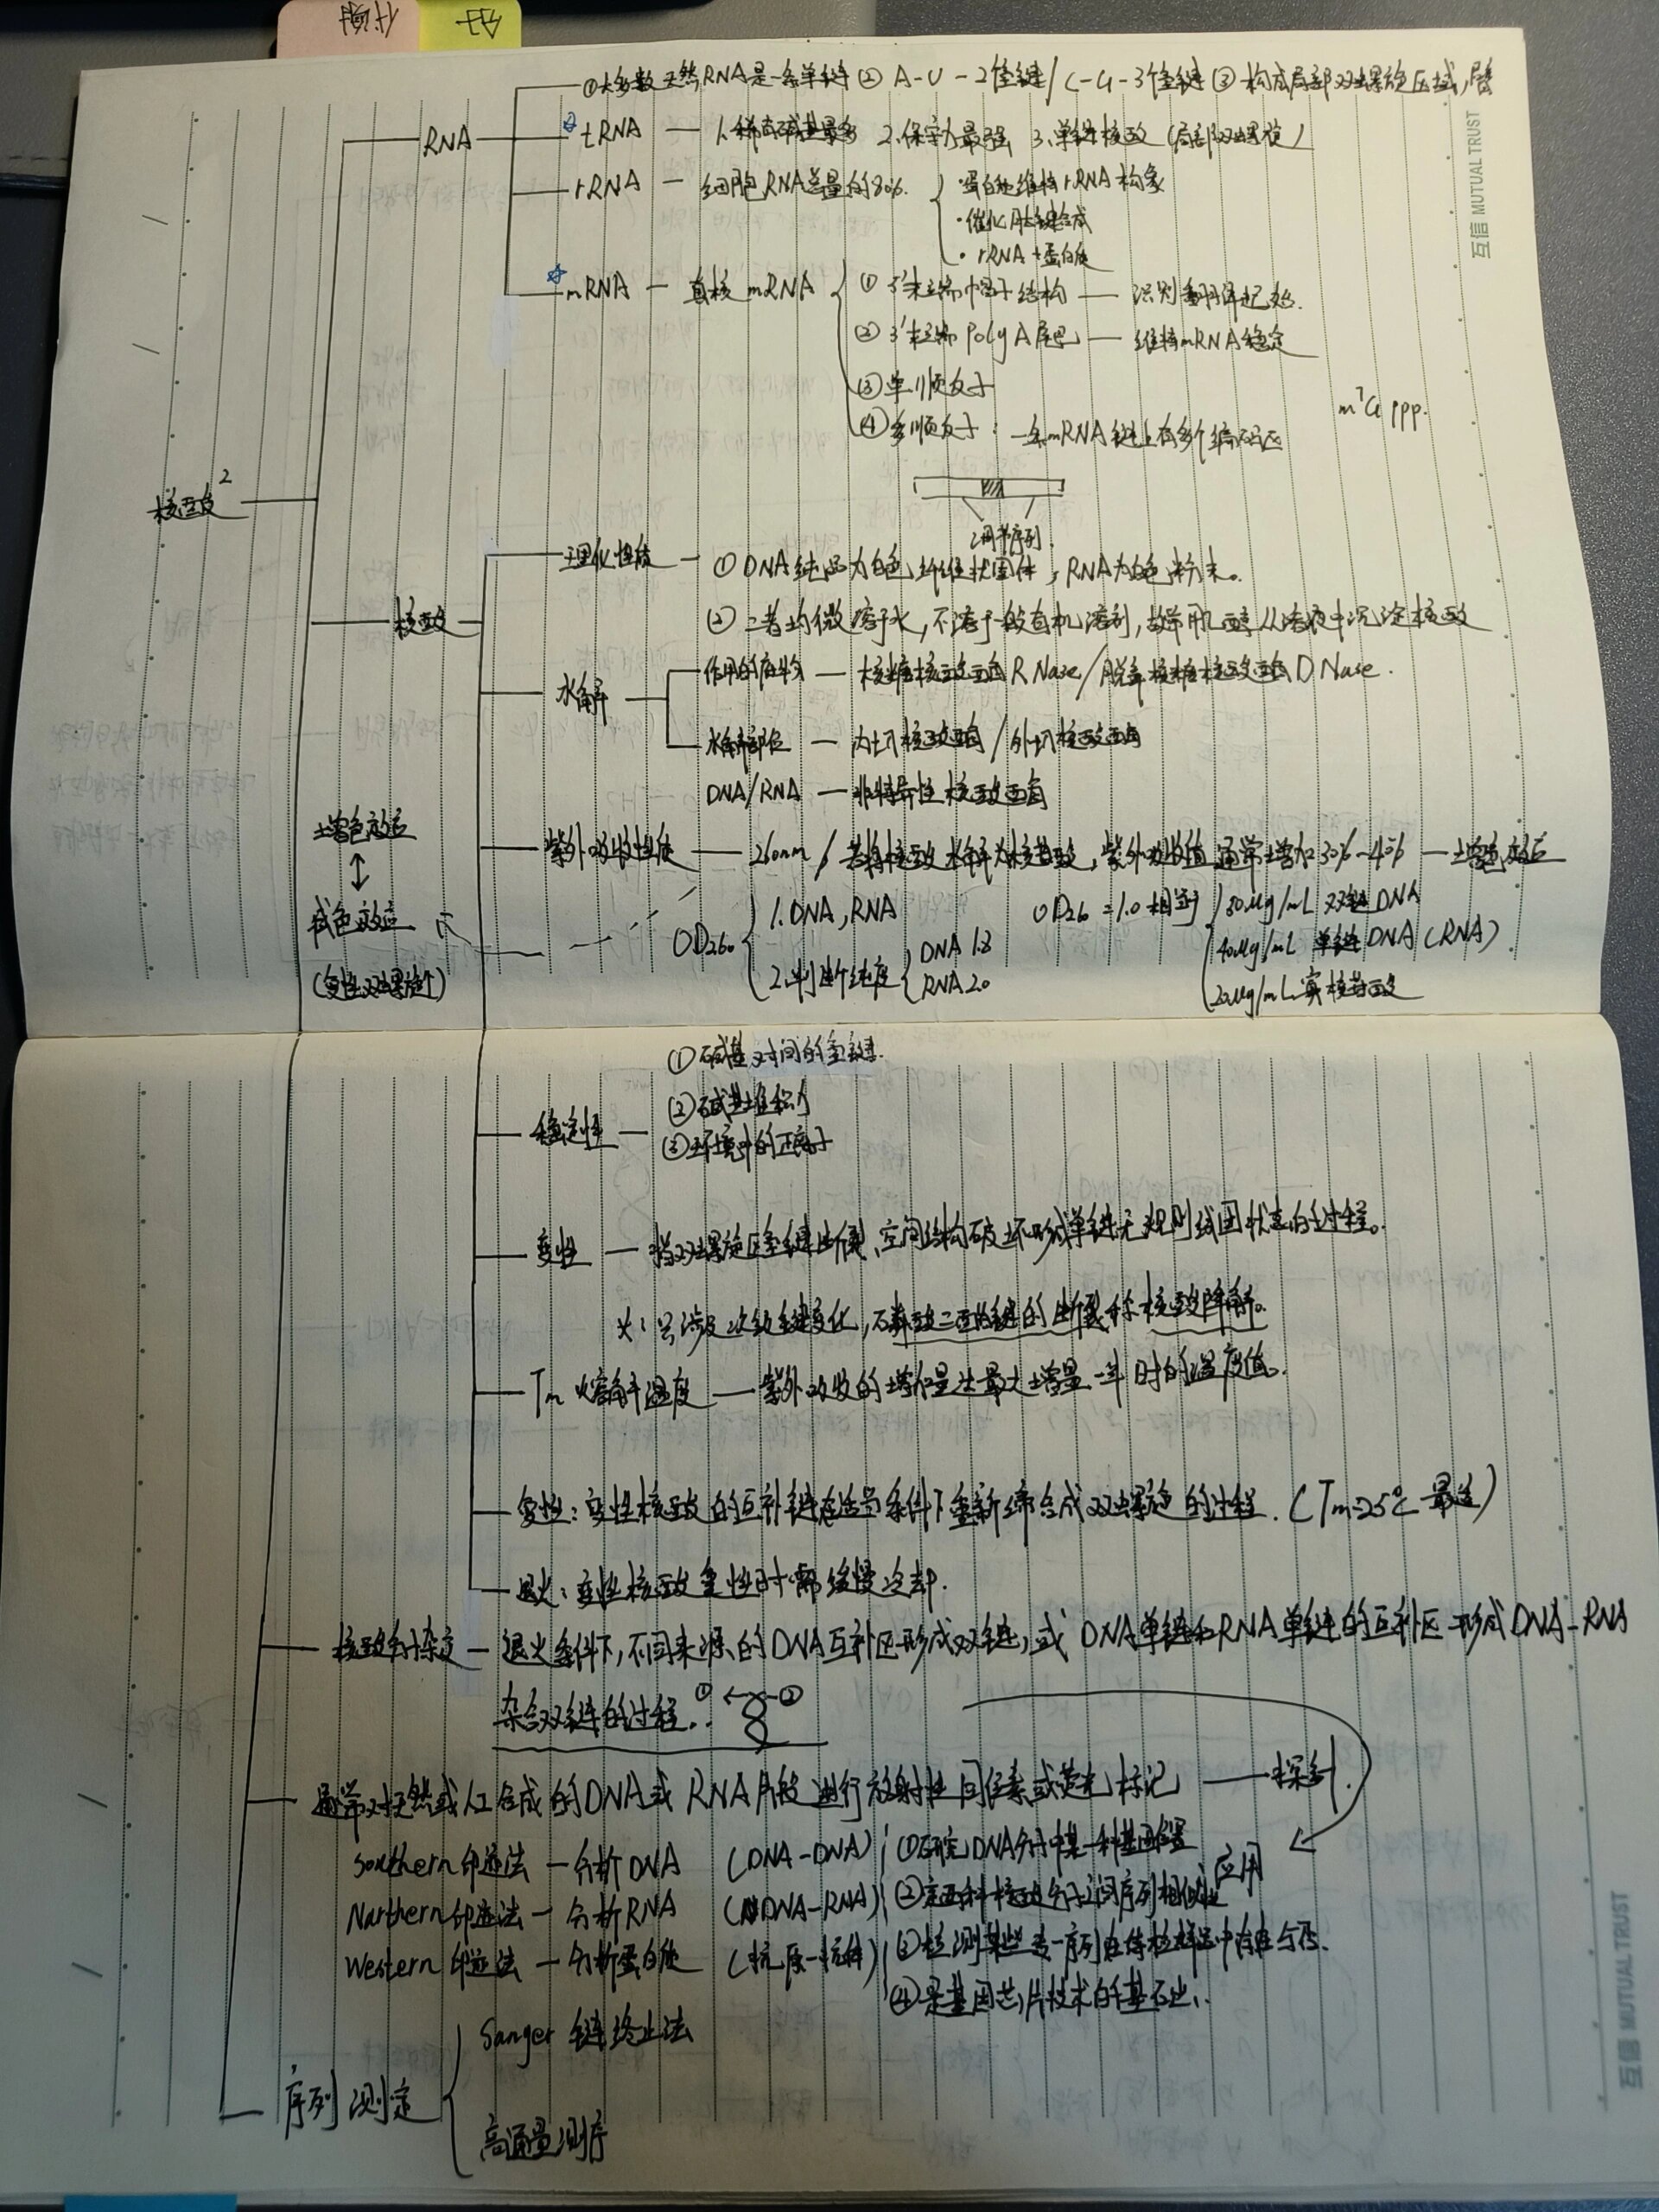 ①大多数天然RNA是一条单链 ② A-U-2个氢键/C-G-3个氢键 ③构成局部双螺旋区域,
RNA
tRNA — 1.稀有碱基最多 2.保守力最强 3.单链核酸(局部双螺旋)
rRNA — 细胞RNA总量的80%.
·蛋白质维持rRNA构象
·催化肽键合成
·rRNA+蛋白质
mRNA — 真核mRNA
① 5'末端帽子结构 — 识别翻译起始.
② 3'末端PolyA尾巴 — 维持mRNA稳定
③单顺反子
④多顺反子: 一条mRNA链上有多个编码区
m⁷Gppp.
调节序列.
核酸²
核酸
理化性质 — ① DNA纯品为白色纤维状固体, RNA为白色粉末。
② 二者均微溶于水,不溶于一般有机溶剂,故常用乙醇从溶液中沉淀核酸
水解
作用的底物 — 核糖核酸酶RNase/脱氧核糖核酸酶DNase.
水解部位 — 内切核酸酶/外切核酸酶
DNA/RNA — 非特异性核酸酶
增色效应
↕
减色效应
(复性双螺旋)
紫外吸收性质 — 260nm/若将核酸水解为核苷酸,紫外吸收值通常增加30%-40% — 增色效应
OD260
1.DNA,RNA
2.判断纯度
DNA 1.8
RNA 2.0
OD26=1.0相当于
50μg/mL 双链DNA
40μg/mL 单链DNA(RNA).
20μg/mL 寡核苷酸
稳定性
①碱基对间的氢键.
②碱基堆积力
③环境中的正离子
变性 — 指双螺旋区氢键断裂、空间结构破坏形成单链无规则线团状态的过程。
只涉及次级键变化,磷酸二酯键的断裂称核酸降解。
Tm 熔解温度 — 紫外吸收的增加量达最大增量一半时的温度值。
复性: 变性核酸的互补链在适当条件下重新缔合成双螺旋的过程.(Tm-25℃最适)
退火: 变性核酸复性时需缓慢冷却.
核酸分子杂交 — 退火条件下,不同来源的DNA互补区形成双链,或DNA单链和RNA单链的互补区形成DNA-RNA
杂合双链的过程. ① ← ②
通常对天然或人工合成的DNA或RNA片段进行放射性同位素或荧光标记 — 探针.
应用
Southern印迹法 — 分析DNA (DNA-DNA)
Narthern印迹法 — 分析RNA (DNA-RNA)
Western印迹法 — 分析蛋白质 (抗原-抗体)
①研究DNA分子中某一种基因位置
②定两种核酸分子间序列相似性
③检测某些专一序列在待检样品中存在与否.
④是基因芯片技术的基础.
序列测定
Sanger 链终止法
高通量测序
互信 MUTUAL TRUST
互信 MUTUAL TRUST